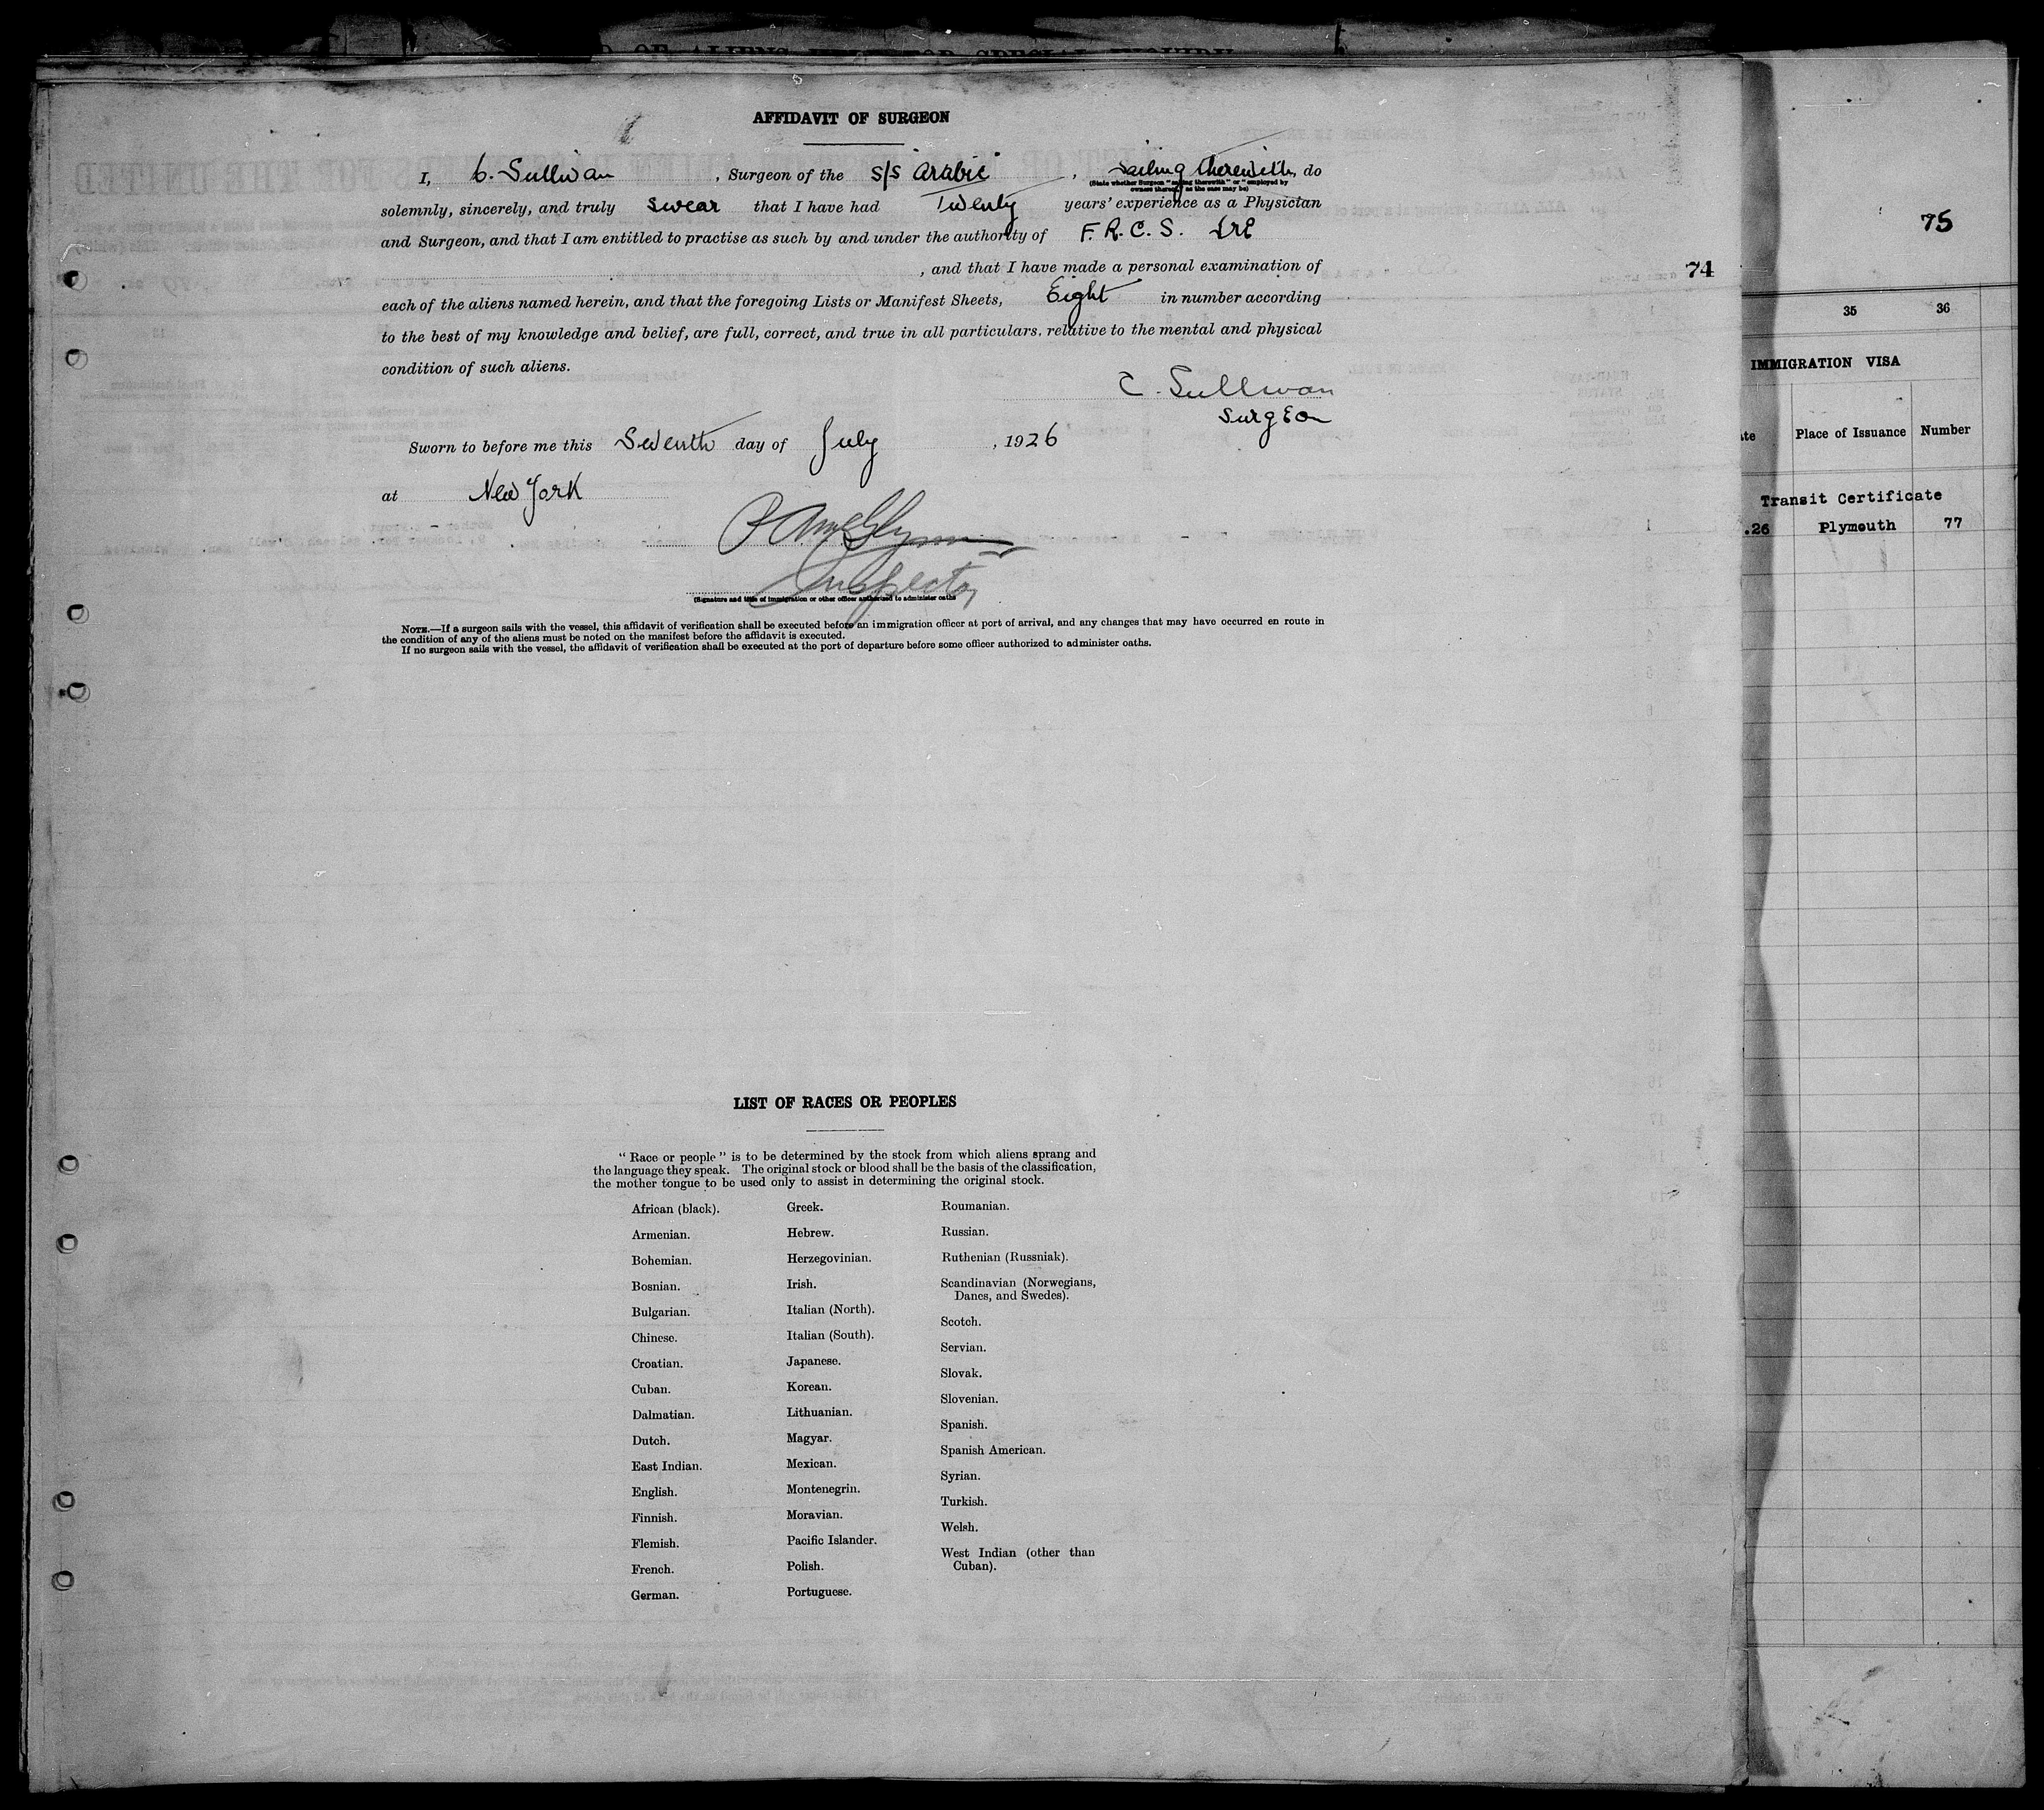 AFFIDAVIT OF SURGEON
I, C. Sullivan, Surgeon of the S/S "Arabic", Sailing therewith, do
(State whether Surgeon "sailing therewith" or "employed by
owners thereof," as the case may be)
solemnly, sincerely, and truly swear that I have had Twenty years' experience as a Physician
and Surgeon, and that I am entitled to practise as such by and under the authority of F. R. C. S. IRE
, and that I have made a personal examination of
each of the aliens named herein, and that the foregoing Lists or Manifest Sheets, Eight in number according
to the best of my knowledge and belief, are full, correct, and true in all particulars, relative to the mental and physical
condition of such aliens.
C. Sullivan
Surgeon
Sworn to before me this Seventh day of July, 1926
at New York
Inspector
(Signature and title of immigration or other officer authorized to administer oaths
NOTE.—If a surgeon sails with the vessel, this affidavit of verification shall be executed before an immigration officer at port of arrival, and any changes that may have occurred en route in
the condition of any of the aliens must be noted on the manifest before the affidavit is executed.
If no surgeon sails with the vessel, the affidavit of verification shall be executed at the port of departure before some officer authorized to administer oaths.
LIST OF RACES OR PEOPLES
"Race or people" is to be determined by the stock from which aliens sprang and
the language they speak. The original stock or blood shall be the basis of the classification,
the mother tongue to be used only to assist in determining the original stock.
African (black).
Armenian.
Bohemian.
Bosnian.
Bulgarian.
Chinese.
Croatian.
Cuban.
Dalmatian.
Dutch.
East Indian.
English.
Finnish.
Flemish.
French.
German.
Greek.
Hebrew.
Herzegovinian.
Irish.
Italian (North).
Italian (South).
Japanese.
Korean.
Lithuanian.
Magyar.
Mexican.
Montenegrin.
Moravian.
Pacific Islander.
Polish.
Portuguese.
Roumanian.
Russian.
Ruthenian (Russniak).
Scandinavian (Norwegians,
Danes, and Swedes).
Scotch.
Servian.
Slovak.
Slovenian.
Spanish.
Spanish American.
Syrian.
Turkish.
Welsh.
West Indian (other than
Cuban).
74
75
35 36
IMMIGRATION VISA
Place of Issuance Number
Transit Certificate
.26 Plymouth 77